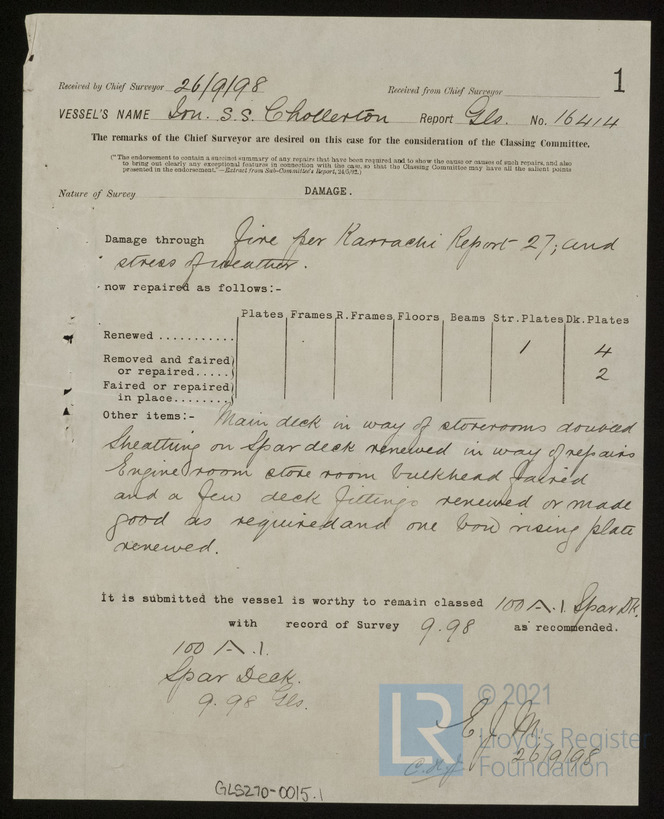 1
Received by Chief Surveyor 26/9/98 Received from Chief Surveyor
VESSEL'S NAME Ion. S.S. Chollerton Report Gls. No. 16414
The remarks of the Chief Surveyor are desired on this case for the consideration of the Classing Committee.
("The endorsement to contain a succinct summary of any repairs that have been required and to show the cause or causes of such repairs, and also
to bring out clearly any exceptional features in connection with the case, so that the Classing Committee may have all the salient points
presented in the endorsement."—Extract from Sub-Committee's Report, 24/5/92.)
Nature of Survey DAMAGE.
Damage through fire per Karrachi Report 27; and
stress of weather.
now repaired as follows:-
Plates Frames R.Frames Floors Beams Str.Plates Dk.Plates
Renewed ........... 1 4
Removed and faired
or repaired..... 2
Faired or repaired
in place........
Other items:- Main deck in way of storerooms doubled
Sheathing on Spar deck renewed in way of repairs
Engine room store room bulkhead faired
and a few deck fittings renewed or made
good as required and one bow rising plate
renewed.
It is submitted the vessel is worthy to remain classed 100 A.1. Spar Dk.
with record of Survey 9.98 as recommended.
100 A.1.
Spar Deck.
9.98 Gls.
E J M
26/9/98
GLS270-0015.1
LR © 2021
Lloyd's Register
Foundation